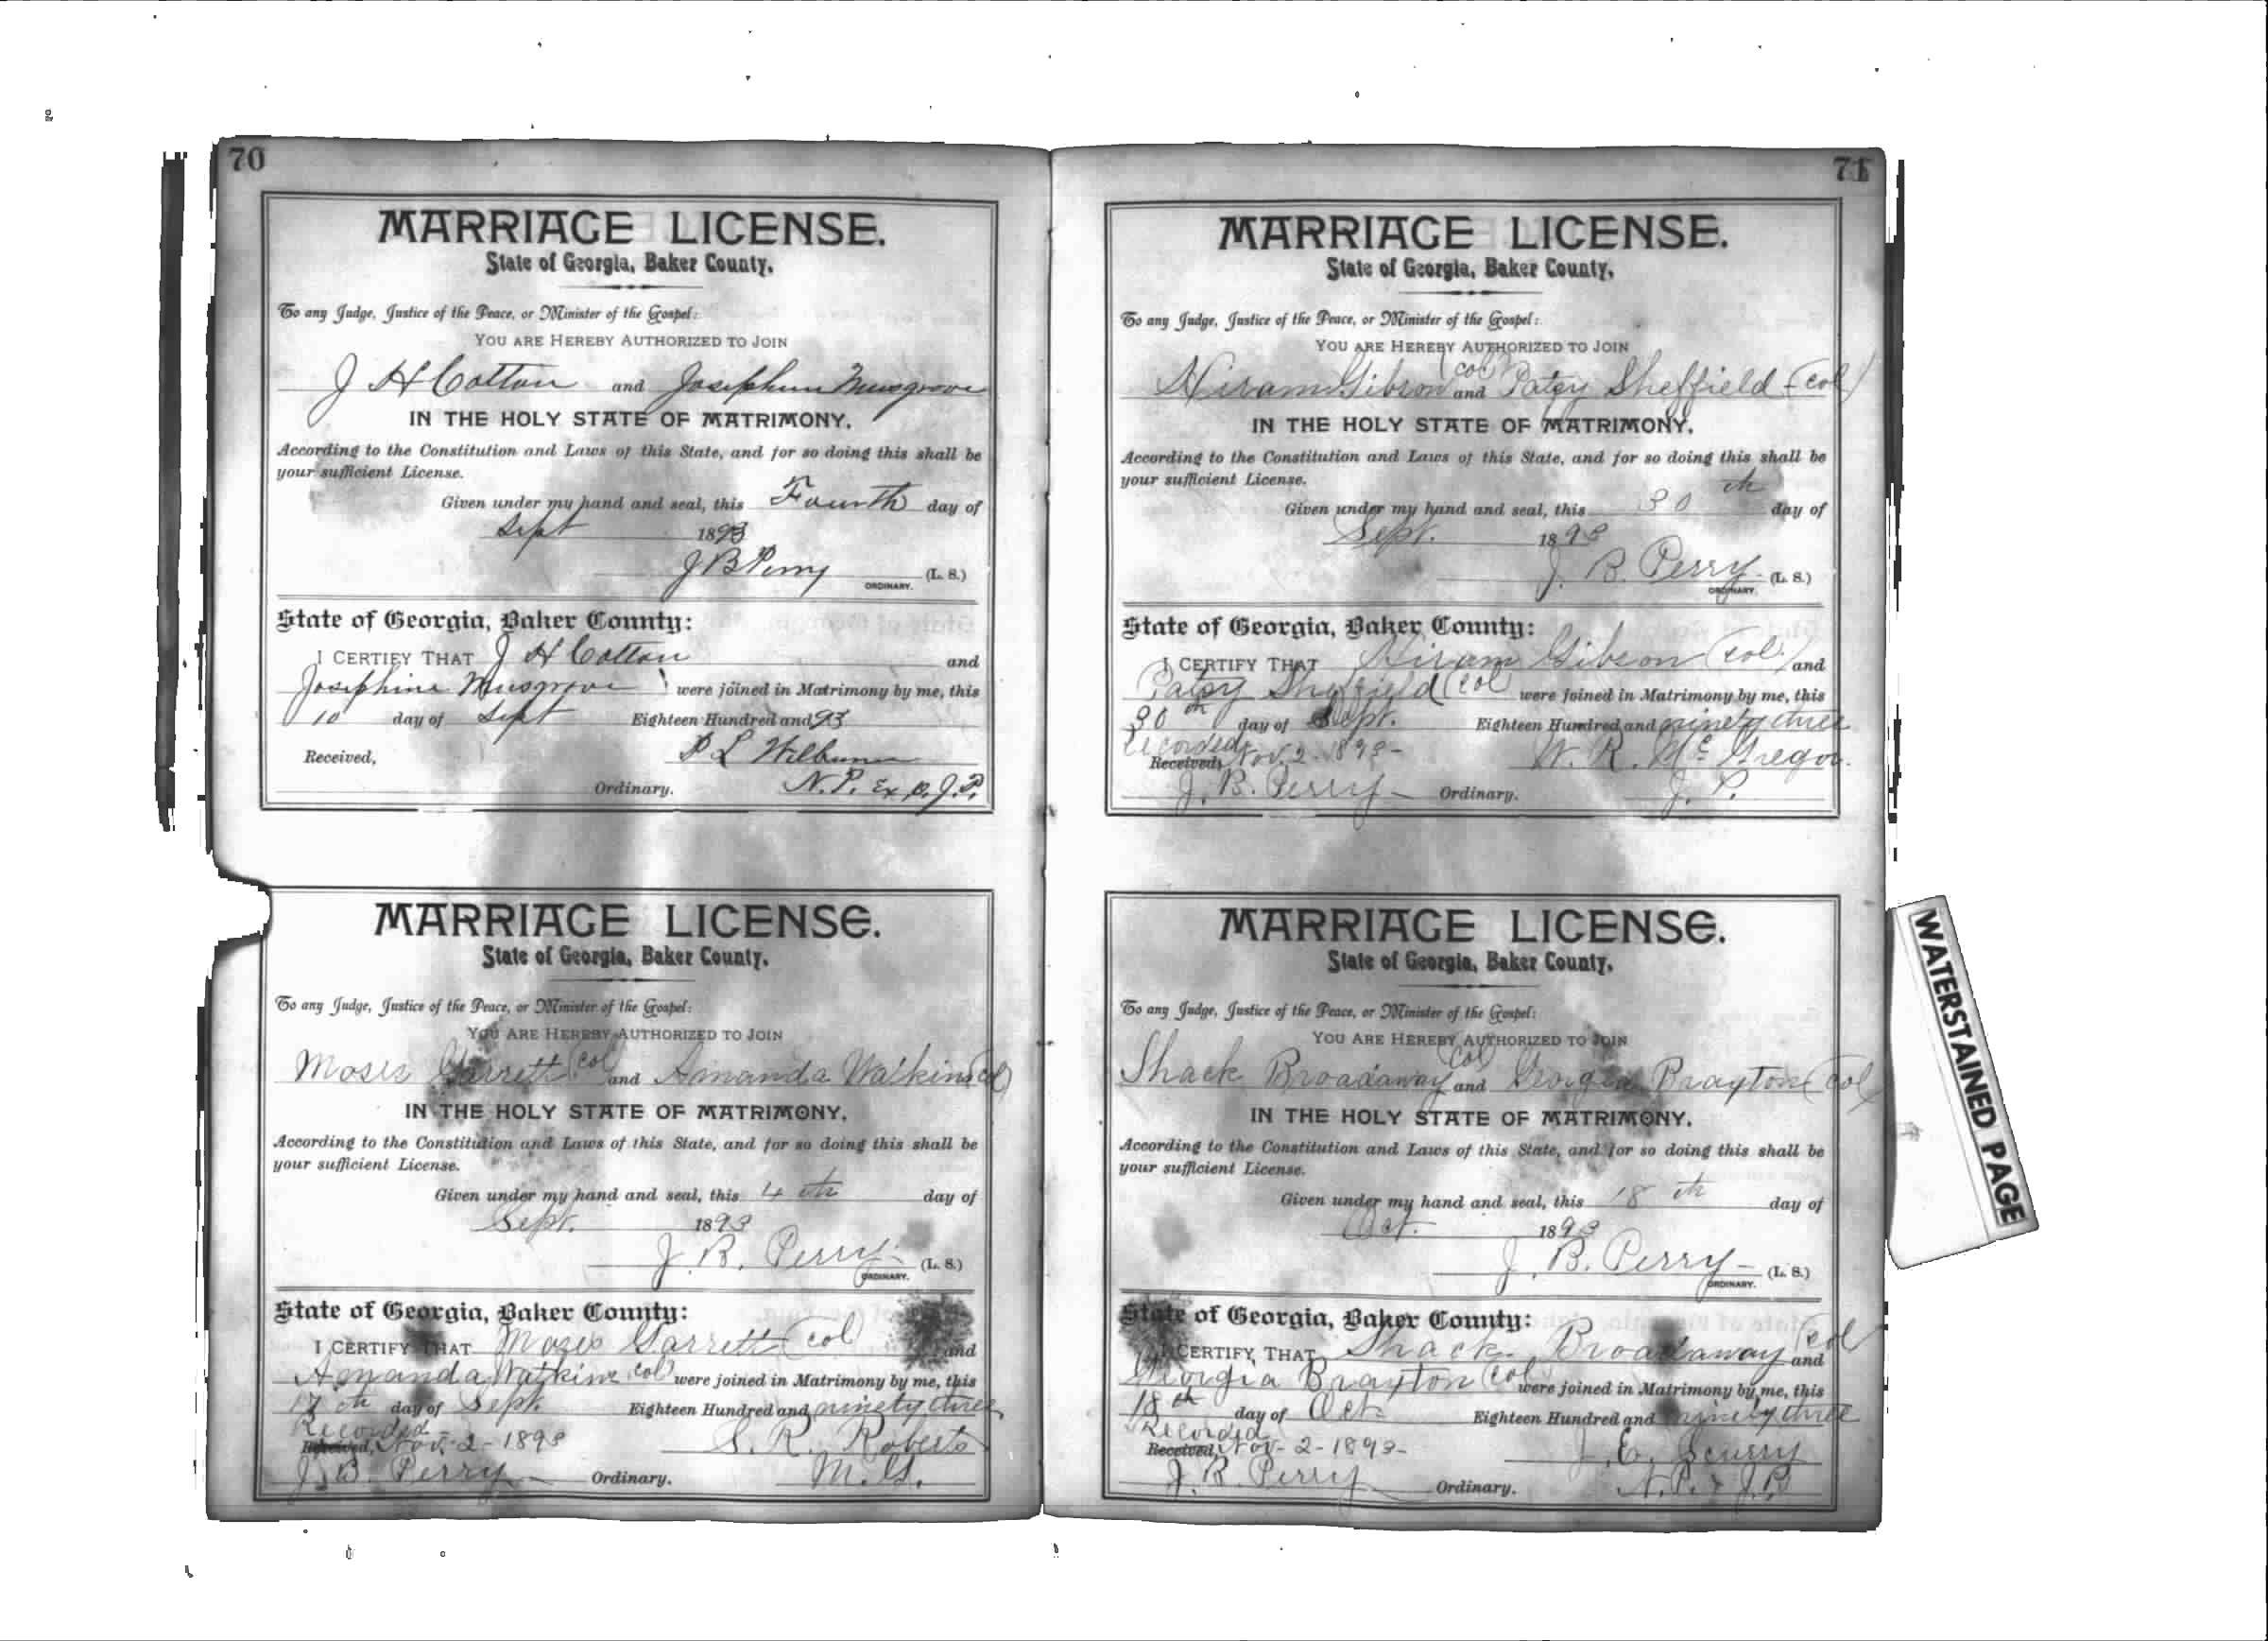 70
MARRIAGE LICENSE.
State of Georgia, Baker County,
To any Judge, Justice of the Peace, or Minister of the Gospel:
YOU ARE HEREBY AUTHORIZED TO JOIN
J H Cotton and Josephine Musgrove
IN THE HOLY STATE OF MATRIMONY,
According to the Constitution and Laws of this State, and for so doing this shall be
your sufficient License.
Given under my hand and seal, this Fourth day of
Sept 1893
J B Perry (L. S.)
ORDINARY.
State of Georgia, Baker County:
I CERTIFY THAT J H Cotton and
Josephine Musgrove were joined in Matrimony by me, this
10 day of Sept Eighteen Hundred and 93
Received, P L Wilburn
Ordinary. N. P. Ex o. J. P.
MARRIAGE LICENSE.
State of Georgia, Baker County,
To any Judge, Justice of the Peace, or Minister of the Gospel:
YOU ARE HEREBY AUTHORIZED TO JOIN
Moses Garrett (col and Amanda Watkins (col)
IN THE HOLY STATE OF MATRIMONY,
According to the Constitution and Laws of this State, and for so doing this shall be
your sufficient License.
Given under my hand and seal, this 4th day of
Sept. 1893
J. B. Perry. (L. S.)
ORDINARY.
State of Georgia, Baker County:
I CERTIFY THAT Moses Garrett (col) and
Amanda Watkins col) were joined in Matrimony by me, this
17th day of Sept. Eighteen Hundred and ninety three
Recorded
Received, Nov. 2 - 1893 S. R. Roberts
J. B. Perry Ordinary. M. G.
71
MARRIAGE LICENSE.
State of Georgia, Baker County,
To any Judge, Justice of the Peace, or Minister of the Gospel:
YOU ARE HEREBY AUTHORIZED TO JOIN
Hiram Gibson (col) and Patsy Sheffield - (col)
IN THE HOLY STATE OF MATRIMONY,
According to the Constitution and Laws of this State, and for so doing this shall be
your sufficient License.
Given under my hand and seal, this 30th day of
Sept. 1893
J. B. Perry. (L. S.)
ORDINARY.
State of Georgia, Baker County:
I CERTIFY THAT Hiram Gibson (col.) and
Patsy Sheffield (col were joined in Matrimony by me, this
30th day of Sept. Eighteen Hundred and ninety three
Recorded
Received, Nov. 2 1893- W. R. McGregor.
J. B. Perry - Ordinary. J. P.
MARRIAGE LICENSE.
State of Georgia, Baker County,
To any Judge, Justice of the Peace, or Minister of the Gospel:
YOU ARE HEREBY AUTHORIZED TO JOIN
Shack Broadaway (col) and Georgia Brayton (col
IN THE HOLY STATE OF MATRIMONY,
According to the Constitution and Laws of this State, and for so doing this shall be
your sufficient License.
Given under my hand and seal, this 18th day of
Oct. 1893
J. B. Perry - (L. S.)
ORDINARY.
State of Georgia, Baker County:
I CERTIFY THAT Shack Broadaway (col and
Georgia Brayton (col were joined in Matrimony by me, this
18th day of Oct. Eighteen Hundred and ninety three
Recorded
Received, Nov- 2 - 1893- J. E. Scurry
J. B. Perry Ordinary. N. P. & J. P.
WATERSTAINED PAGE